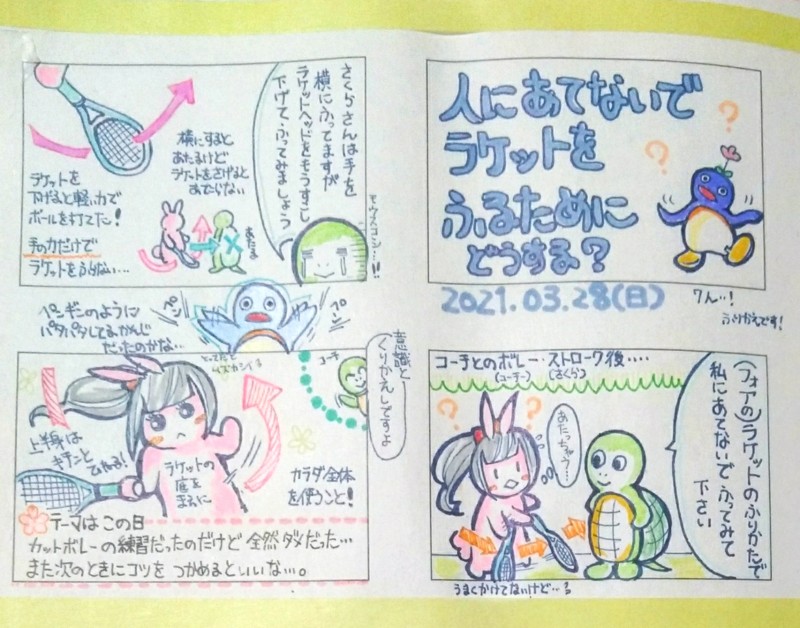 人にあてないで
ラケットを
ふるために
どうする?
2021.03.28(日)
ふりかえです!
コーチとのボレー・ストローク後‥‥
(コーチ)
(さくら)
(フォアの)ラケットのふりかたで
私にあてないで ふってみて
下さい
あたっちゃう…
うまくかけてないけど…
さくらさんは手を
横にふってますが
ラケットヘッドをもうすこし
下げて、ふってみましょう
モウスコシ…!!
横にすると
あたるけど
ラケットをさげると
あたらない
あたる
ラケットを
下げると軽い力で
ボールを打てた!
手の力だけで
ラケットをふらない…
ペンギンのように
パタパタしてるかんじ
だったのかな…
ペン
ペン
意識と
くりかえしですよ
コーチ
上半身は
キチンと
ひねる!
ラケットの
底を
まえに
カラダ全体
を使うこと!
テーマはこの日
カットボレーの練習だったのだけど 全然 ダメだった…
また次のときにコツを つかめるといいな…。